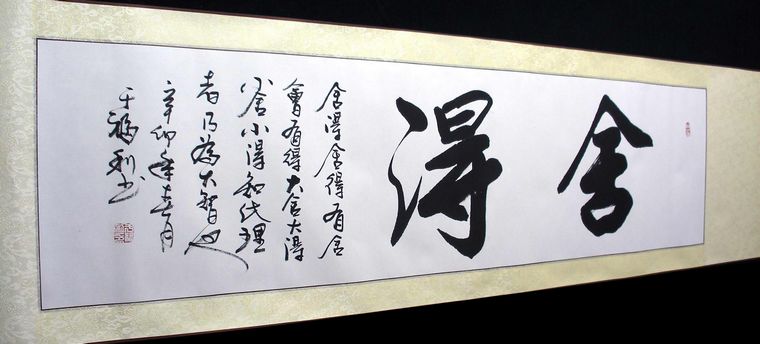 舍得
舍得舍得有舍
會有得大舍大得
小舍小得知此理
者乃為大智也
辛卯年春月
于福利书